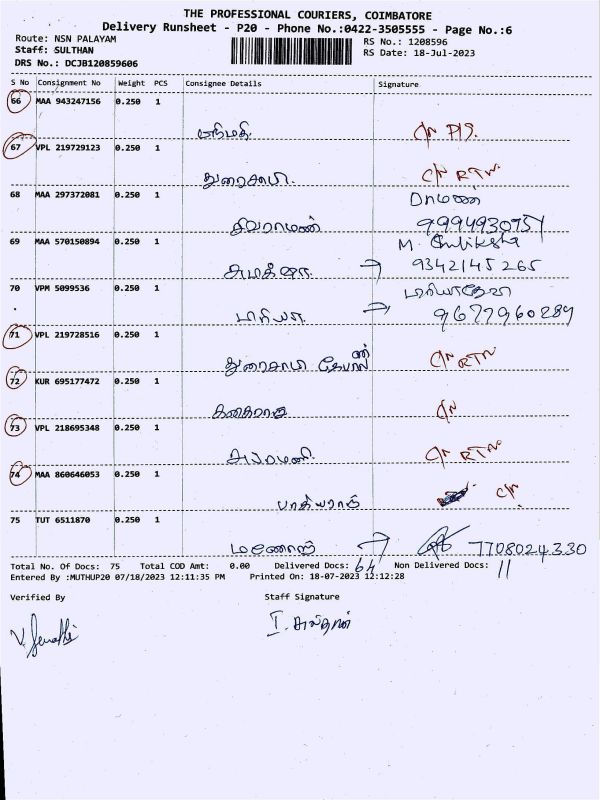 THE PROFESSIONAL COURIERS, COIMBATORE
Delivery Runsheet - P20 - Phone No.:0422-3505555 - Page No.:6
Route: NSN PALAYAM
RS No.: 1208596
Staff: SULTHAN
RS Date: 18-Jul-2023
DRS No.: DCJB120859606
S No Consignment No Weight PCS Consignee Details Signature
66 MAA 943247156 0.250 1
C/N
67 VPL 219729123 0.250 1
துரைசாமி. C/N RTN
68 MAA 297372081 0.250 1
சிவராமன்
69 MAA 570150894 0.250 1
→ 9342145265
70 VPM 5099536 0.250 1
மாரியா. → 9677960289
71 VPL 219728516 0.250 1
துரைசாமி C/N RTN
72 KUR 695177472 0.250 1
C/N
73 VPL 218695348 0.250 1
C/N RTN
74 MAA 860646053 0.250 1
பாக்யராஜ் C/N
75 TUT 6511870 0.250 1
மனோஜ் → 7708024330
Total No. Of Docs: 75 Total COD Amt: 0.00 Delivered Docs: 64 Non Delivered Docs: 11
Entered By :MUTHUP20 07/18/2023 12:11:35 PM Printed On: 18-07-2023 12:12:28
Verified By Staff Signature
I. சுல்தான்